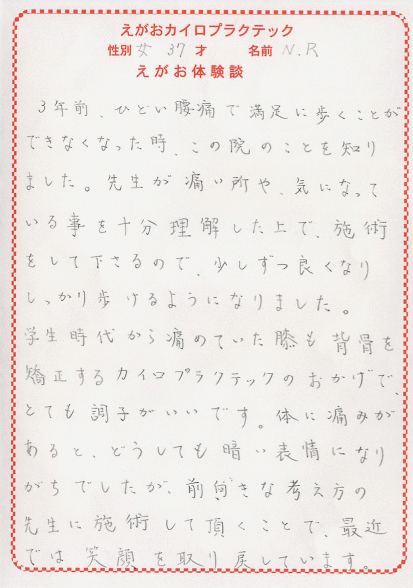 えがおカイロプラクテック
性別 女 37 才 名前 N.R
えがお体験談
3年前、ひどい腰痛で満足に歩くことが
できなくなった時、この院のことを知り
ました。先生が痛い所や、気になって
いる事を十分理解した上で、施術
をして下さるので、少しずつ良くなり
しっかり歩けるようになりました。
学生時代から痛めていた膝も背骨を
矯正するカイロプラクテックのおかげで、
とても調子がいいです。体に痛みが
あると、どうしても暗い表情になり
がちでしたが、前向きな考え方の
先生に施術して頂くことで、最近
では笑顔を取り戻しています。